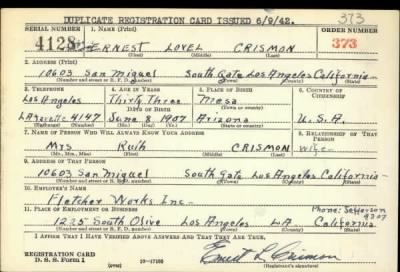 DUPLICATE REGISTRATION CARD ISSUED 6/9/42. 373
SERIAL NUMBER 1. NAME (Print) ORDER NUMBER
4128 ERNEST LOVEL CRISMON 373
(First) (Middle) (Last)
2. ADDRESS (Print)
10603 San Miguel South Gate Los Angeles California
(Number and street or R. F. D. number) (Town) (County) (State)
3. TELEPHONE 4. AGE IN YEARS 5. PLACE OF BIRTH 6. COUNTRY OF CITIZENSHIP
Los Angeles Thirty Three Mesa
DATE OF BIRTH (Town or county)
LAfayette 4147 June 8 1907 Arizona U.S.A.
(Exchange) (No.) (Mo.) (Day) (Yr.) (State or country)
7. NAME OF PERSON WHO WILL ALWAYS KNOW YOUR ADDRESS 8. RELATIONSHIP OF THAT PERSON
Mrs Ruth CRISMON wife
(Mr., Mrs., Miss) (First) (Middle) (Last)
9. ADDRESS OF THAT PERSON
10603 San Miguel South Gate Los Angeles California
(Number and street or R. F. D. number) (Town) (County) (State)
10. EMPLOYER'S NAME
Fletcher Works Inc. Phone: Jefferson
11. PLACE OF EMPLOYMENT OR BUSINESS
1225 South Olive Los Angeles LA California
(Number and street or R. F. D. number) (Town) (County) (State)
I AFFIRM THAT I HAVE VERIFIED ABOVE ANSWERS AND THAT THEY ARE TRUE.
REGISTRATION CARD
D. S. S. Form 1 (over) 16—17105 Ernest L. Crismon
(Registrant's signature)